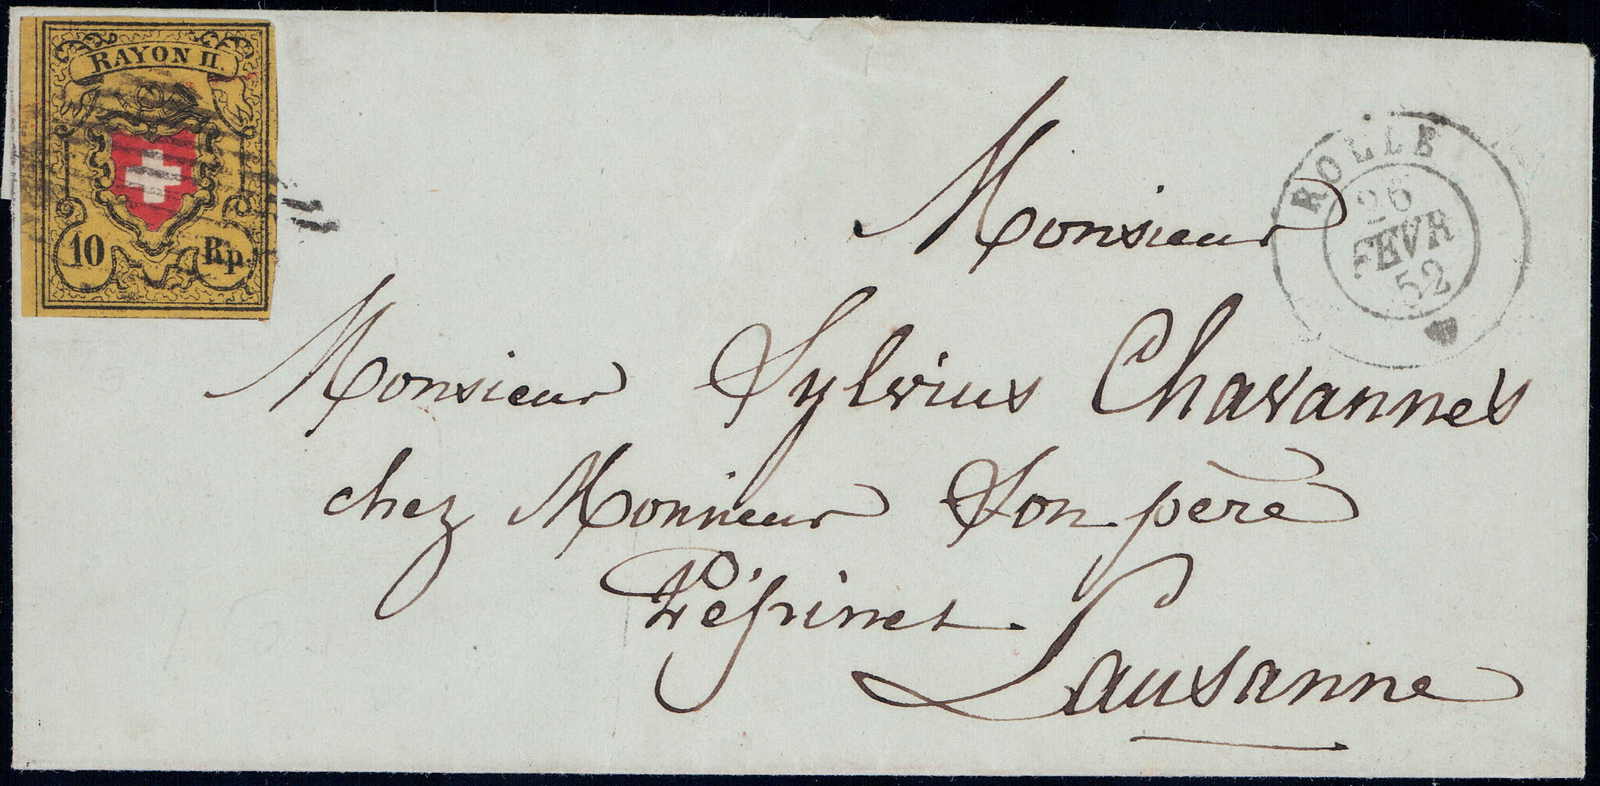 RAYON II.
10 Rp.
ROLLE
26
FEVR
52
Monsieur
Monsieur Sylvius Chavannes
chez Monsieur Son père
Pépinet
Lausanne